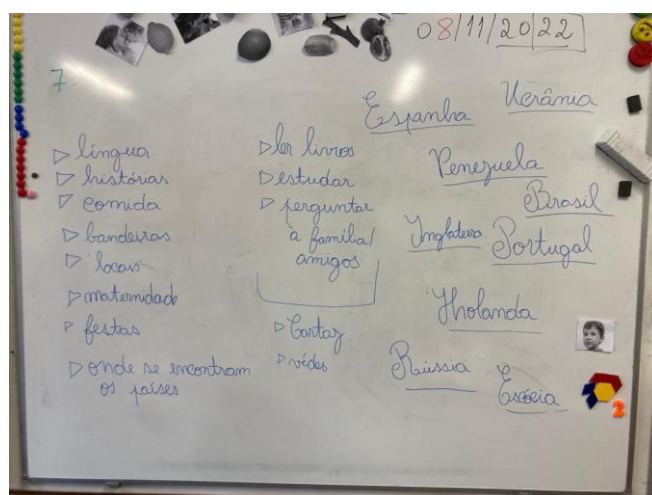 08/11/2022
7.
▷ língua
▷ histórias
▷ comida
▷ bandeiras
▷ locais
▷ maternidade
▷ festas
▷ onde se encontram
os países
▷ ler livros
▷ estudar
▷ perguntar
à família/
amigos
▷ Cartaz
▷ vídeo
Espanha
Ucrânia
Venezuela
Brasil
Inglaterra
Portugal
Holanda
Rússia
Escócia
2